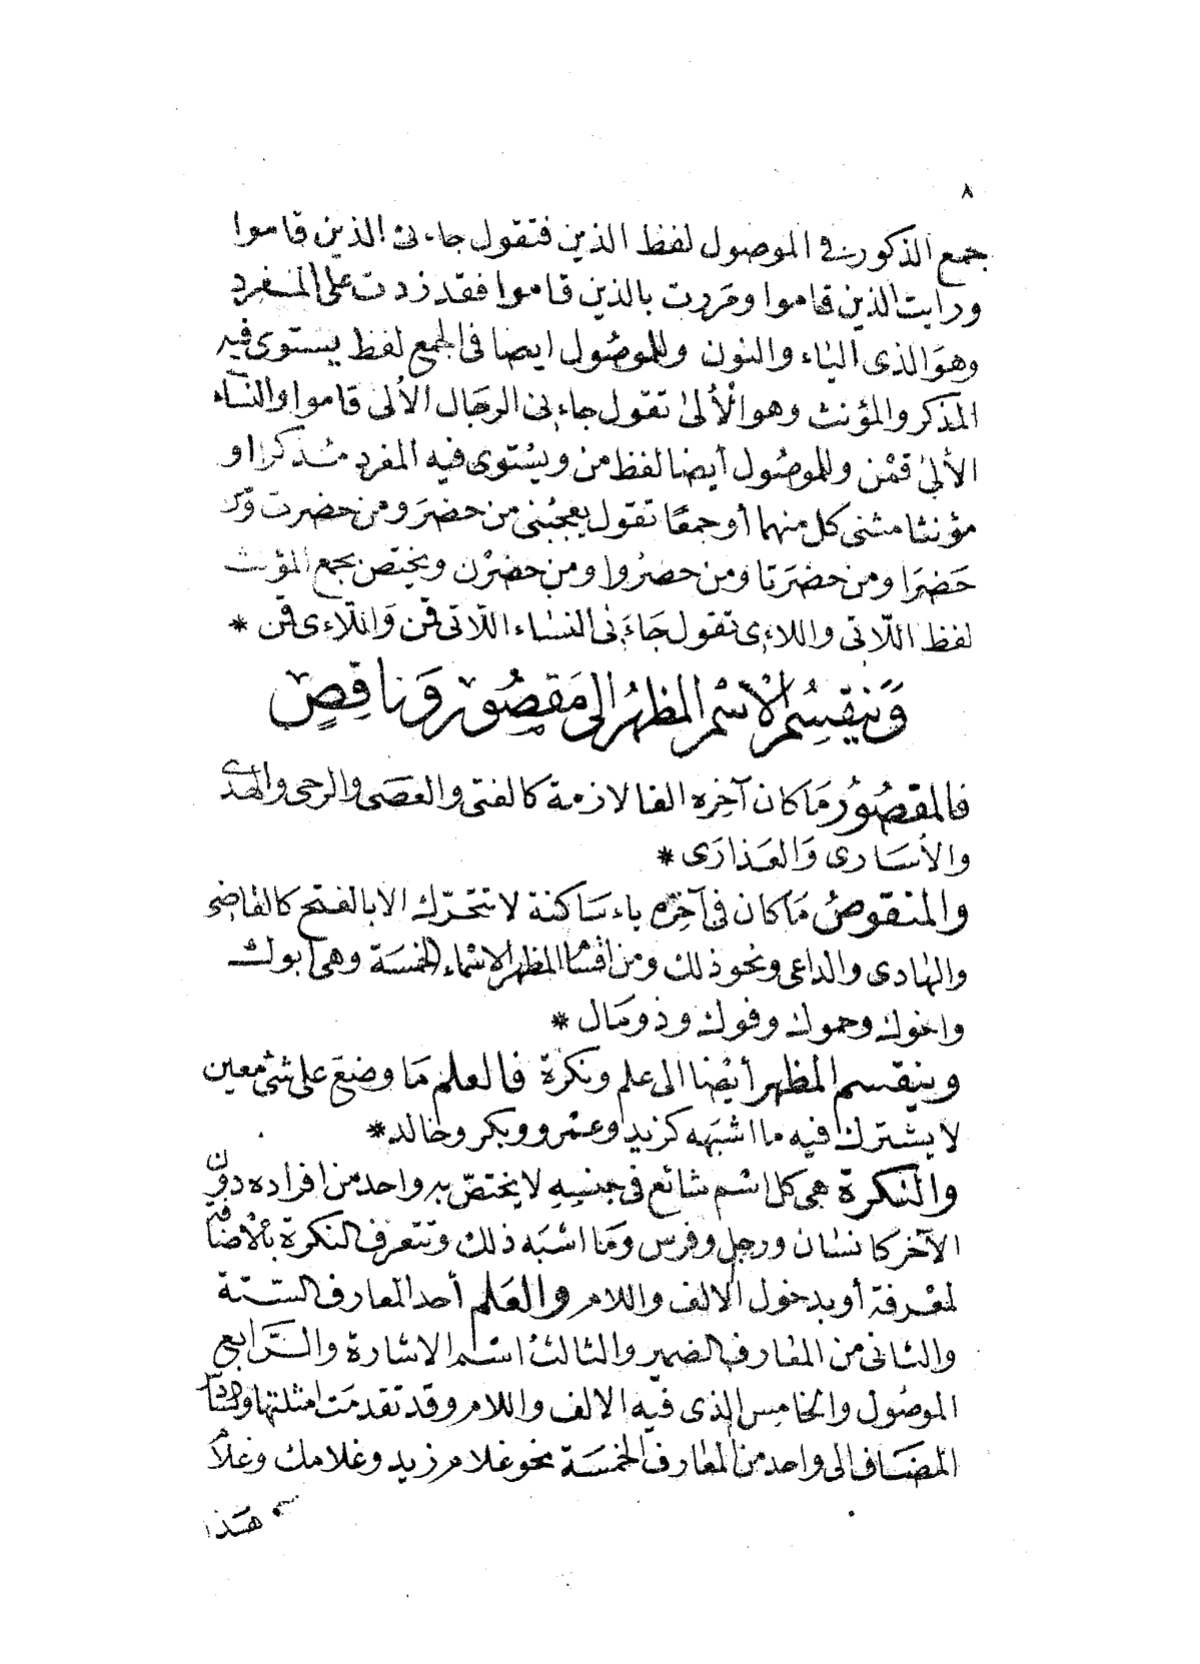 ٨
جمع الذكور في الموصول لفظ الذين فتقول جاءنى الذين قاموا
ورايت الذين قاموا ومَررت بالذين قاموا فقد زدت على المفرد
وهوَ الذى الياء والنون وللموصُول ايضا فى الجمع لفظ يستوى فيه
المذكر والمؤنث وهو الأُلىٰ تقول جاءنى الرجَال الأُلىٰ قاموا والنسآء
الأُلىٰ قمْن وللموصُول أيضا لفظ من ويسْتوى فيه المفرد مُذكرا او
مؤنثا مثنى كل منهما أو جمعًا تقول يعجبُنى من حضرَ ومن حضرت ومن
حَضرَا ومن حضرَتا ومن حضرُوا ومن حضرْن ويختص بجمع المؤنث
لفظ اللّاتى واللاءِى تقول جَاءَنى النسَاء اللّاتى قمن وَاللّاءى قمن *
وَينقسِمُ الْاسْمُ المظهرُ الى مَقصُورٍ وَناقِصٍ
فالمقصُورُ مَا كان آخِره الفا لازمة كالفتى والعصَى والرحى والهدى
والأسَارى وَالعَذارَى *
والمنقوصُ مَا كان فى آخِره ياء سَاكنة لا تتحرّك الا بالفتح كالقاضى
والهادى والداعى ونحو ذلك ومن اقسَام المظهر الاسْماء الخمسَة وهى أبوك
واخوك وحموك وفوك وذو مَال *
وينقسم المظهر أيْضا الى علم ونكرة فالعلم مَا وضعَ على شئ معين
لا يشترك فيه ما اشبَهه كزيد وعمْرو وبكر وخالد *
والنكرة هى كل اسْم شائع فى جنسِهِ لا يختصّ به واحد من افراده دون
الآخر كانسَان ورجل وفرس وَمَا اشبَه ذلك وتتعرف النكرة بالْاضافة
لمعْرفة أو بدخول الالف واللام والعَلم أحد المعارف الستة
والثانى من المعَارف الضمير والثالث اسْم الاشارة والرَّابع
الموصُول والخامِس الذى فيه الالف واللام وقد تقدمَت امثلتها وسادسها
المضَاف الى واحد من المعَارف الخمسَة نحو غلام زيد وغلامك وغلام
هَذا